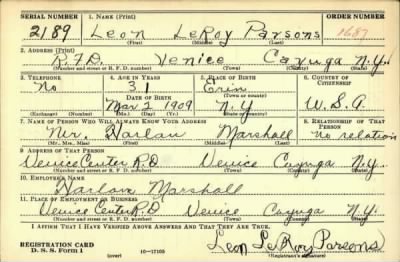 SERIAL NUMBER 1. NAME (Print) ORDER NUMBER
2189 Leon LeRoy Parsons 1687
(First) (Middle) (Last)
2. ADDRESS (Print)
R.F.D. Venice Cayuga N.Y.
(Number and street or R. F. D. number) (Town) (County) (State)
3. TELEPHONE 4. AGE IN YEARS 5. PLACE OF BIRTH 6. COUNTRY OF CITIZENSHIP
No 31 Erin
DATE OF BIRTH (Town or county)
Mar 2 1909 N.Y U.S.A
(Exchange) (Number) (Mo.) (Day) (Yr.) (State or country)
7. NAME OF PERSON WHO WILL ALWAYS KNOW YOUR ADDRESS 8. RELATIONSHIP OF THAT PERSON
Mr. Harlan Marshall no relation
(Mr., Mrs., Miss) (First) (Middle) (Last)
9. ADDRESS OF THAT PERSON
Venice Center R.D Venice Cayuga N.Y.
(Number and street or R. F. D. number) (Town) (County) (State)
10. EMPLOYER'S NAME
Harlan Marshall
11. PLACE OF EMPLOYMENT OR BUSINESS
Venice Center R.D Venice Cayuga N.Y.
(Number and street or R. F. D. number) (Town) (County) (State)
I AFFIRM THAT I HAVE VERIFIED ABOVE ANSWERS AND THAT THEY ARE TRUE.
REGISTRATION CARD
D. S. S. Form 1 (over) 16-17105 Leon LeRoy Parsons
(Registrant's signature)